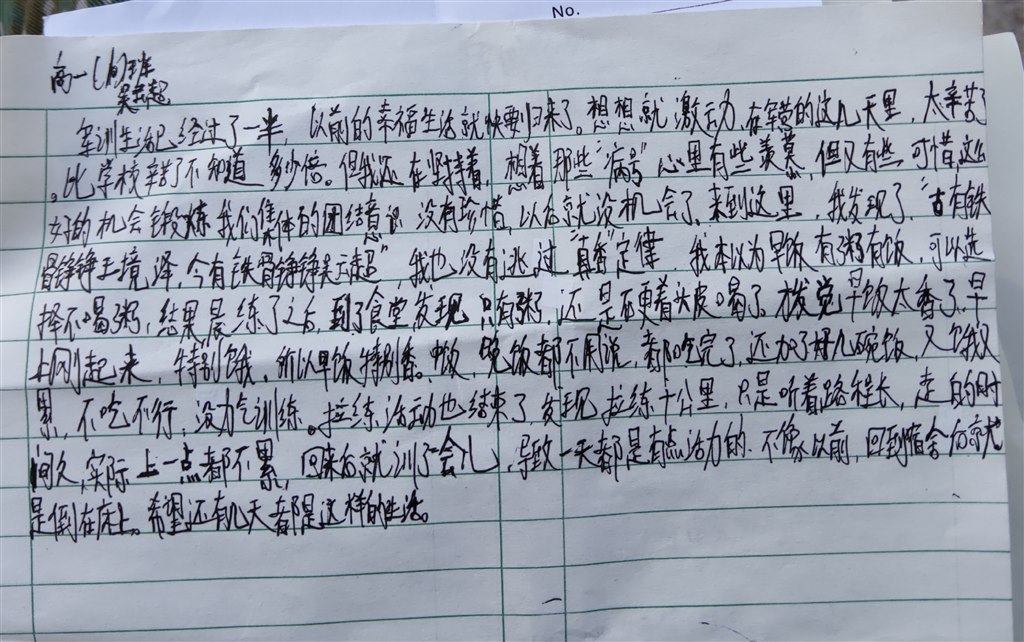 No.
高一(1)班
吴云起
军训生活已经过了一半，以前的幸福生活就快要归来了。想想就激动，在军营的这几天里，太辛苦了
。比学校辛苦了不知道多少倍。但我还在坚持着，想着那些“病号”心里有些羡慕，但又有些可惜，这么
好的机会锻炼我们集体的团结意识，没有珍惜，以后就没机会了。来到这里，我发现了，“古有铁
骨铮铮王境泽，今有铁骨铮铮吴云起”，我也没有逃过“真香”定律，我本以为早饭有粥有饭，可以选
择不喝粥，结果晨练了之后，到了食堂发现只有粥，还是硬着头皮喝了。才发觉早饭太香了，早
上刚起来，特别饿，所以早饭特别香。中饭，晚饭都不用说，都吃完了，还加了好几碗饭，又饿又
累，不吃不行，没力气训练。拉练活动也结束了，发现拉练十公里，只是听着路程长，走的时
间久，实际上一点都不累，回来后就训了会儿，导致一天都是有点活力的，不像以前，回到宿舍后就
是倒在床上。希望还有几天都是这样的生活。